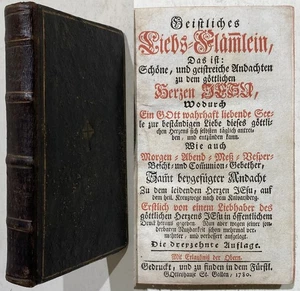 Geistliches
Liebs-Flämlein,
Das ist:
Schöne, und geistreiche Andachten
zu dem göttlichen
Herzen JESU,
Wodurch
Ein GOtt wahrhaft liebende See-
le zur beständigen Liebe dieses göttli-
chen Herzens sich selbsten täglich antrei-
ben, und entzünden kann.
Wie auch
Morgen- Abend- Meß- Vesper-
Beicht- und Com̄union- Gebether,
Sam̄t beygefügter Andacht
Zu dem leidenden Herzen JEsu, auf
dem heil. Kreuzwege nach dem Kalvariberg.
Erstlich von einem Liebhaber des
göttlichen Herzens JEsu in öffentlichem
Druck heraus gegeben. Nun aber wegen einer son-
derbaren Nutzbarkeit schon mehrmal ver-
mehrter, und verbessert aufgelegt.
Die dreyzehnte Auflage.
Mit Erlaubniß der Obern.
Gedruckt, und zu finden in dem Fürstl.
Gotteshaus St. Gallen, 1780.